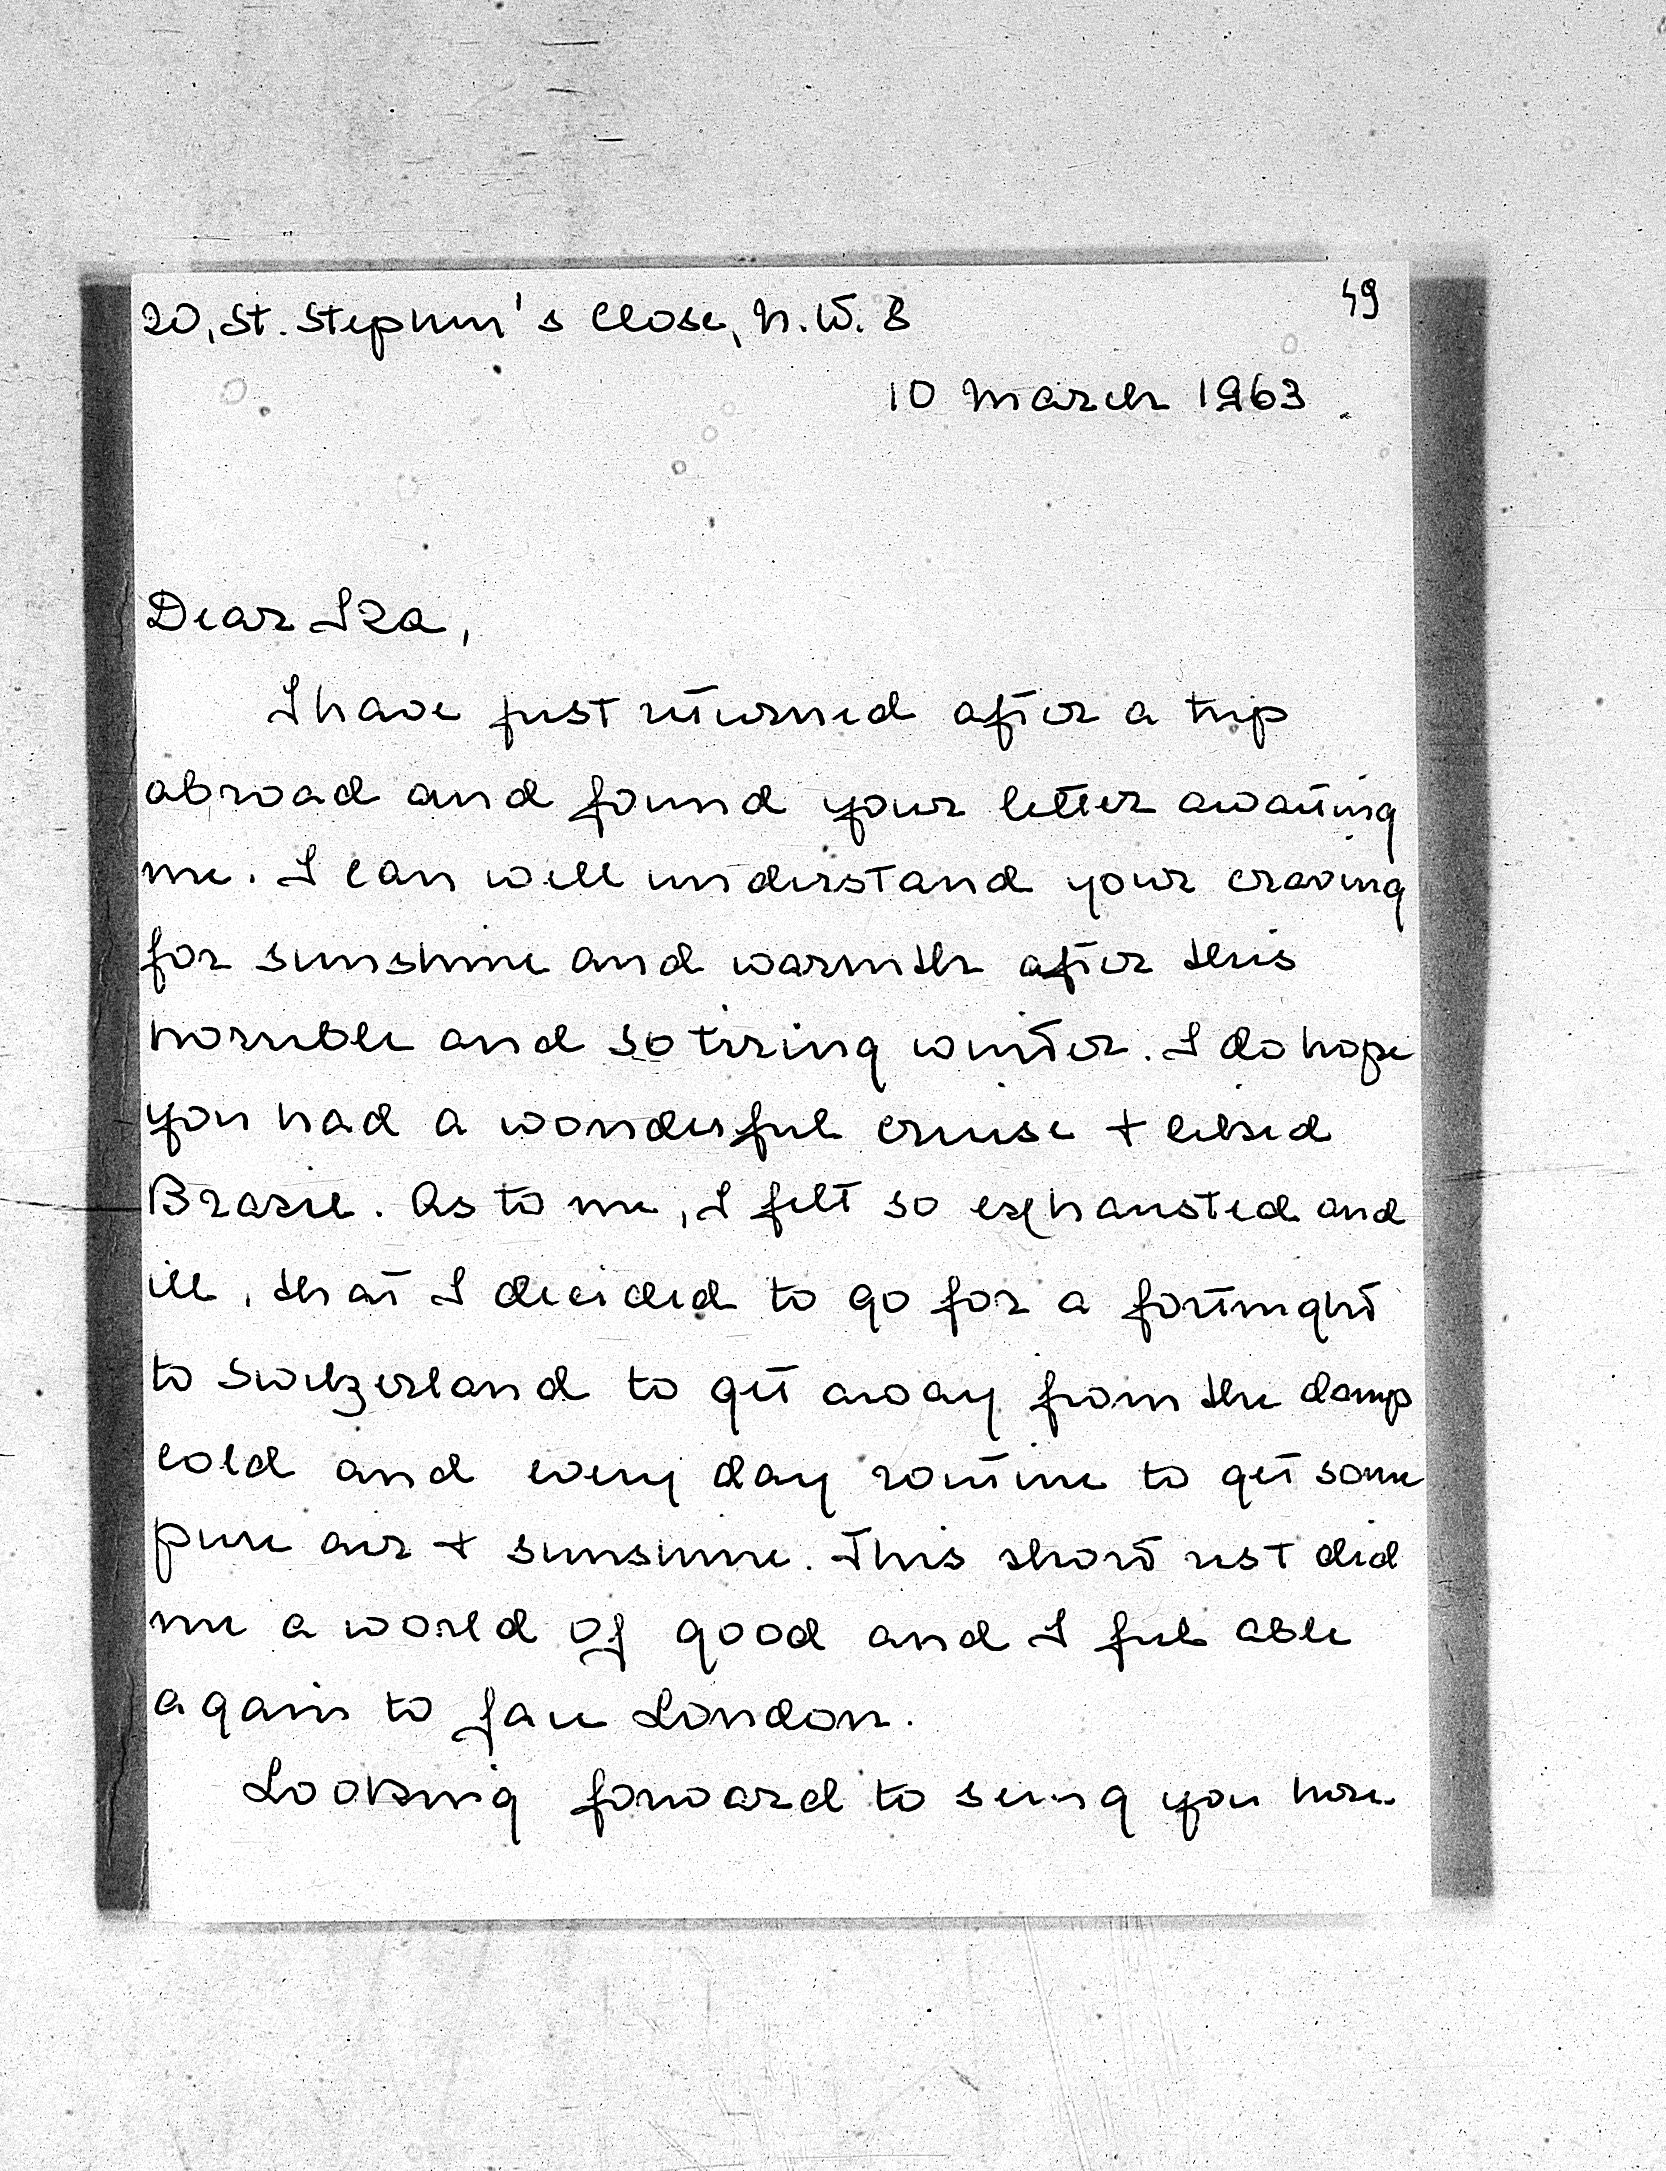 49
20, St. Stephen's Close, N.W. 8
10 March 1963.
Dear Iza,
I have just returned after a trip
abroad and found your letter awaiting
me. I can well understand your craving
for sunshine and warmth after this
horrible and so tiring winter. I do hope
you had a wonderful cruise + liked
Brasil. As to me, I felt so exhausted and
ill, that I decided to go for a fortnight
to Switzerland to get away from the damp
cold and every day routine to get some
pure air + sunshine. This short rest did
me a world of good and I feel able
again to face London.
Looking forward to seeing you here